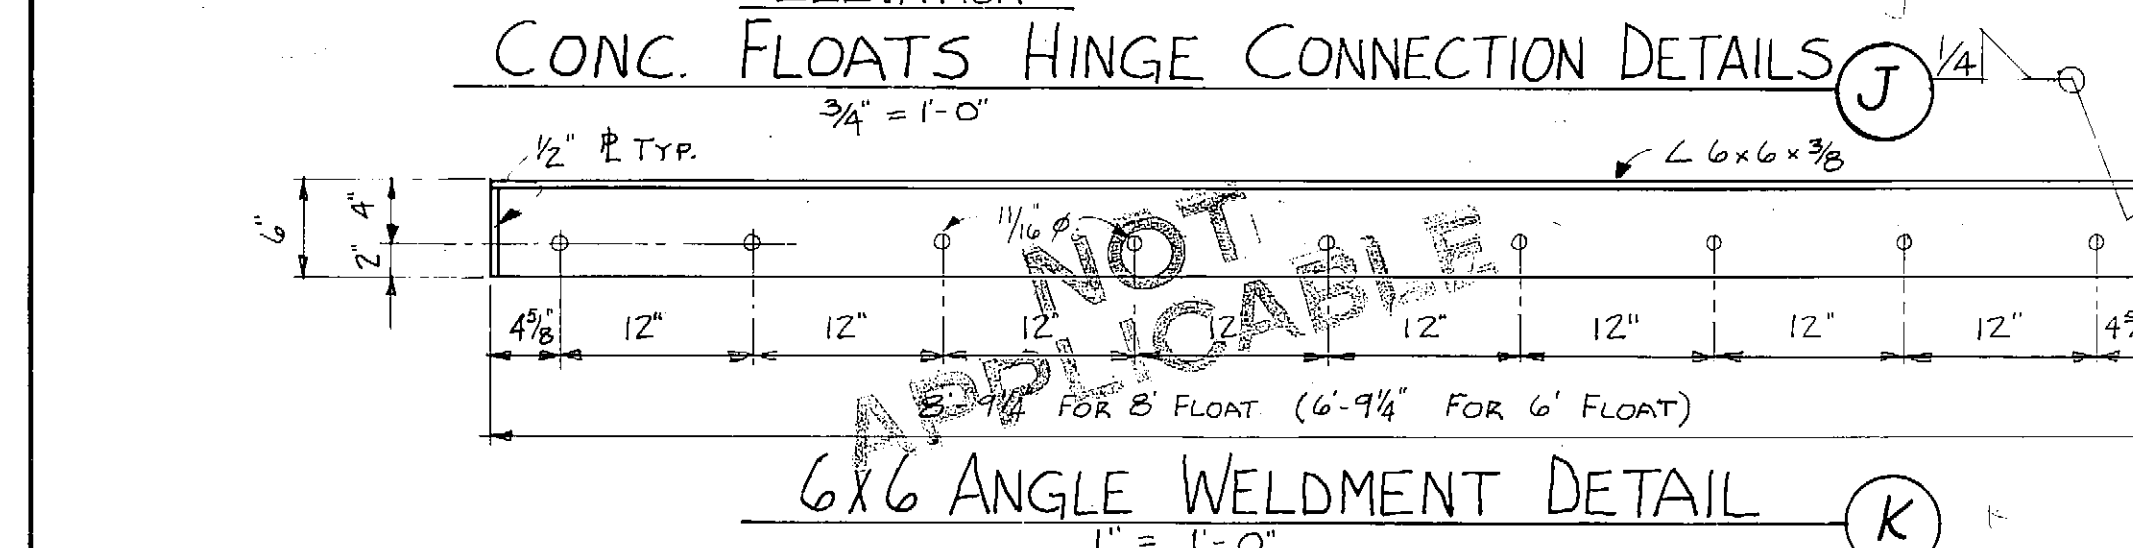 CONC. FLOATS HINGE CONNECTION DETAILS J 1/4
3/4" = 1'-0"
1/2" ℄ TYP.
∠ 6x6x3/8
6"
4"
2"
11/16" ø
NOT
APPLICABLE
4 5/8" 12" 12" 12" 12" 12" 12" 12" 12"
8'-9 1/4" FOR 8' FLOAT (6'-9 1/4" FOR 6' FLOAT)
6X6 ANGLE WELDMENT DETAIL K
1" = 1'-0"